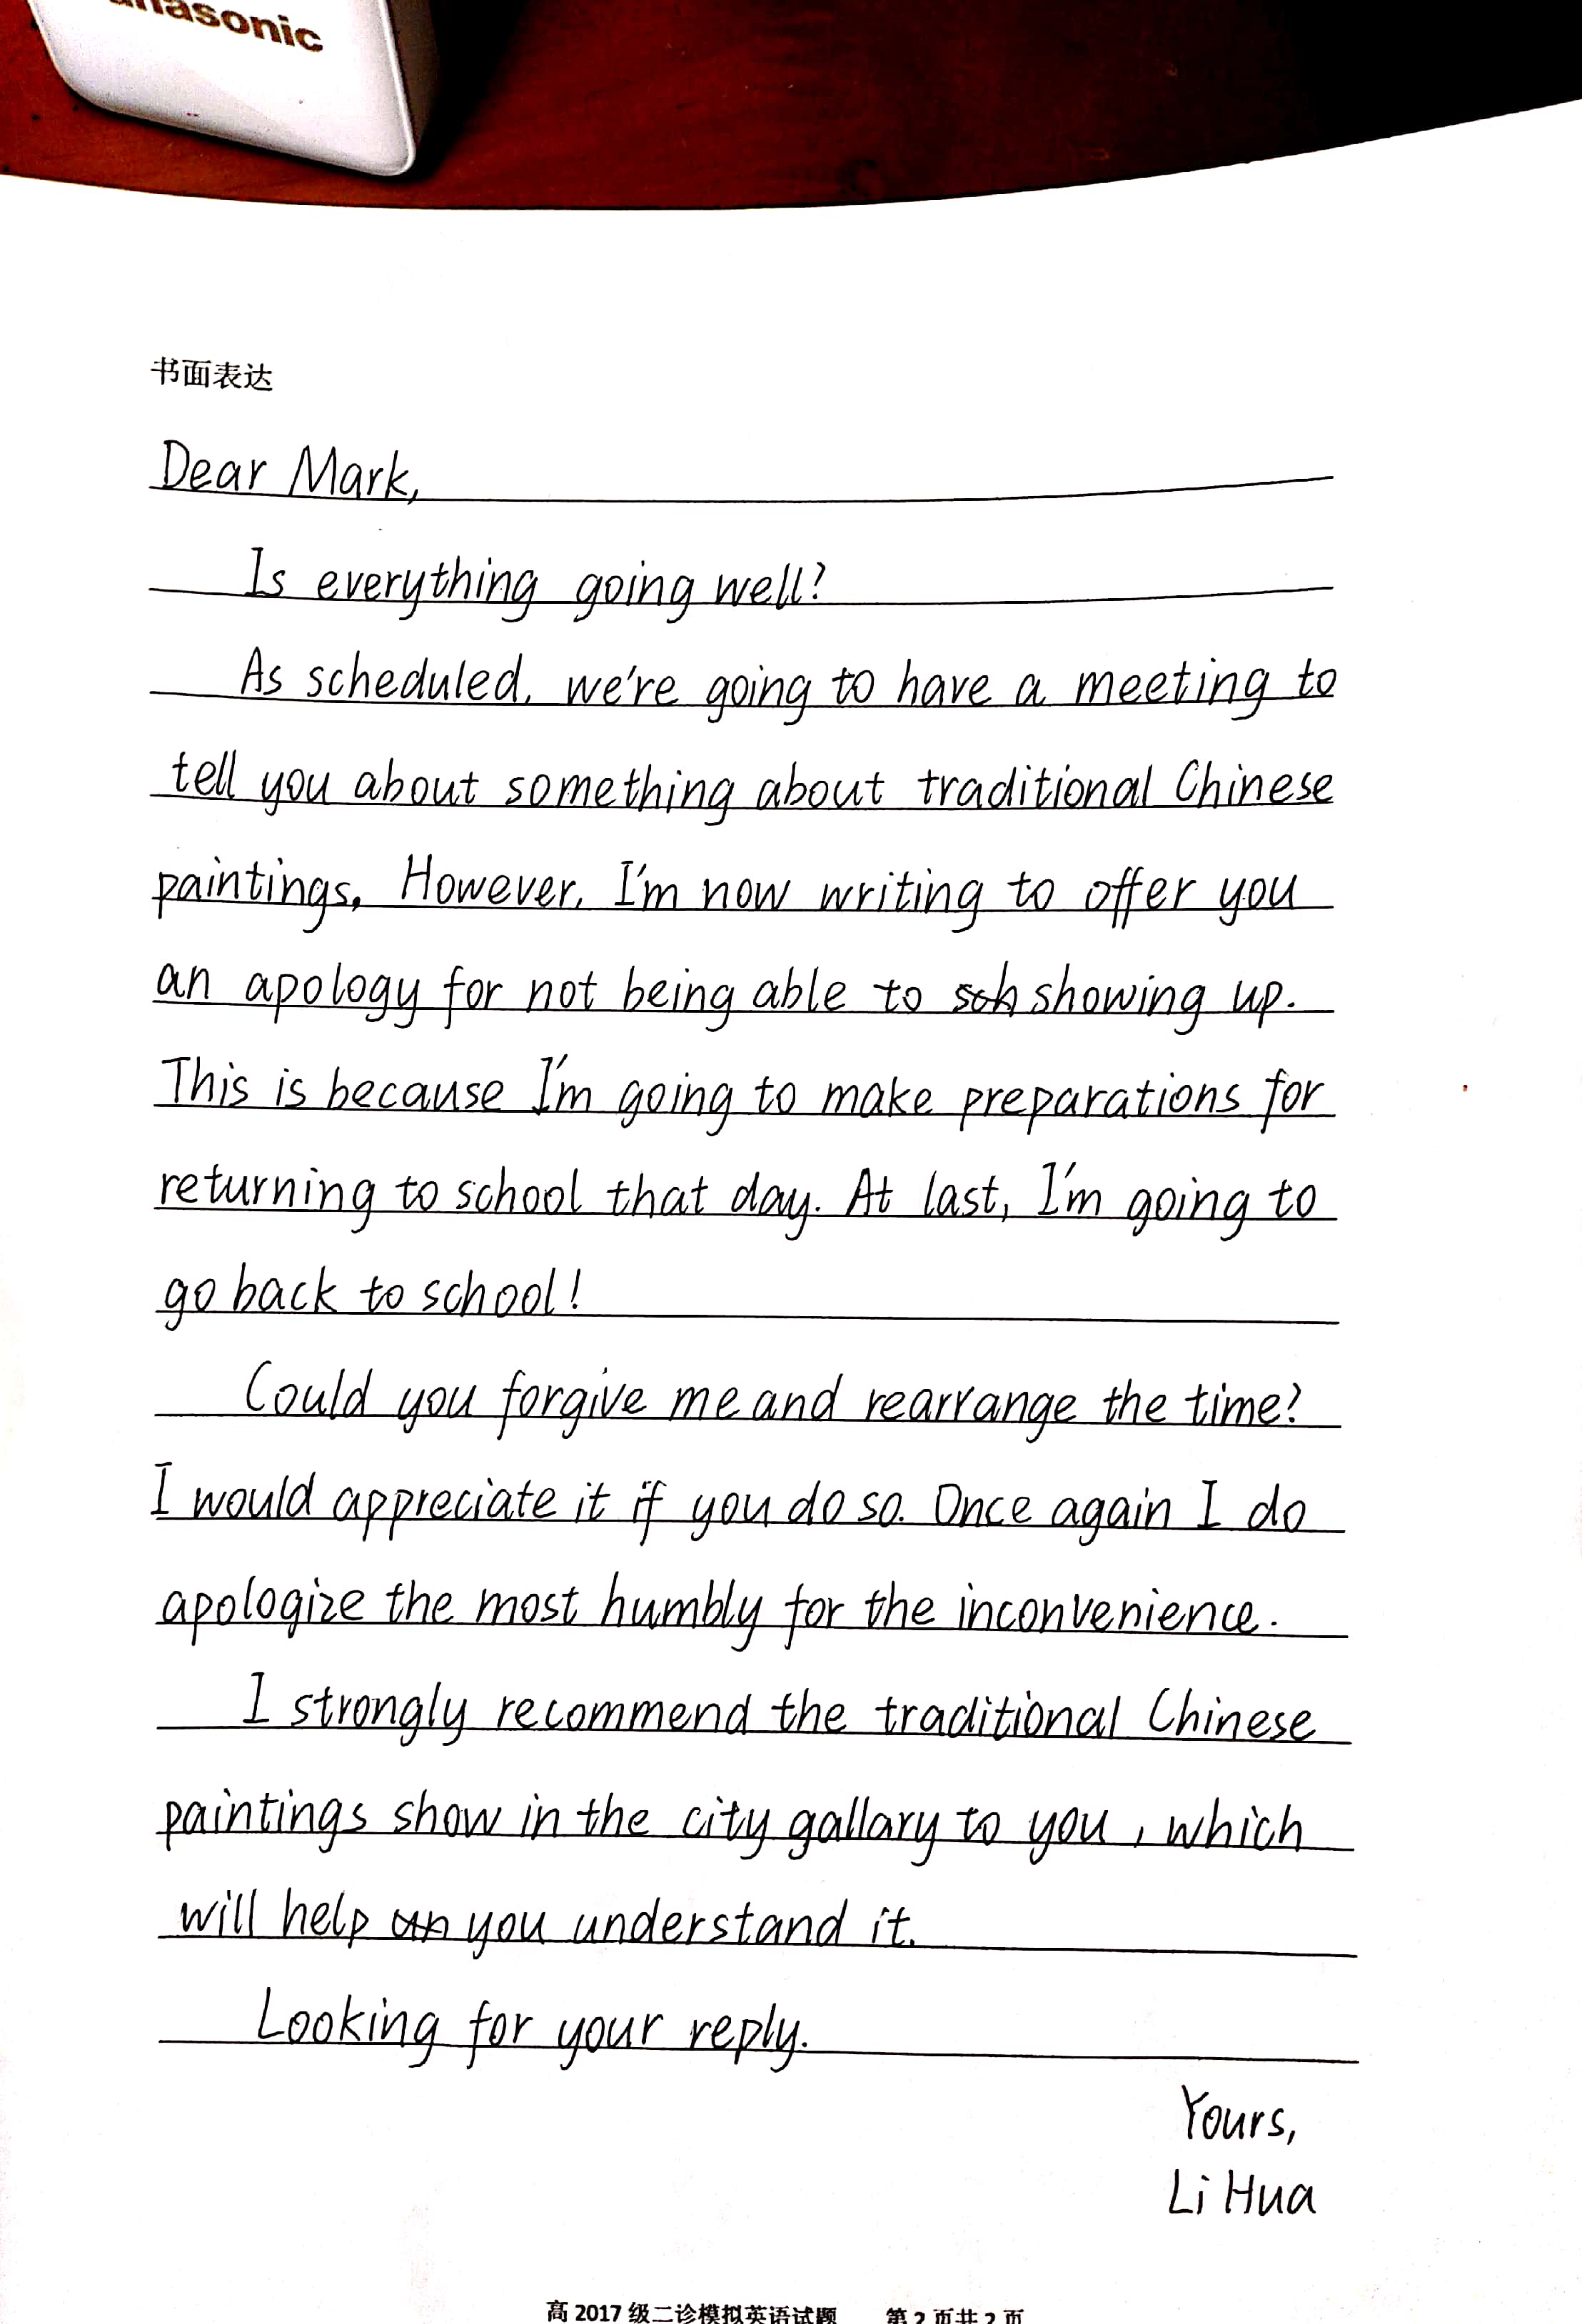 anasonic
书面表达
Dear Mark,
Is everything going well?
As scheduled, we're going to have a meeting to
tell you about something about traditional Chinese
paintings. However, I'm now writing to offer you
an apology for not being able to sch showing up.
This is because I'm going to make preparations for
returning to school that day. At last, I'm going to
go back to school!
Could you forgive me and rearrange the time?
I would appreciate it if you do so. Once again I do
apologize the most humbly for the inconvenience.
I strongly recommend the traditional Chinese
paintings show in the city gallary to you, which
will help un you understand it.
Looking for your reply.
Yours,
Li Hua
高2017级二诊模拟英语试题 第2页共2页